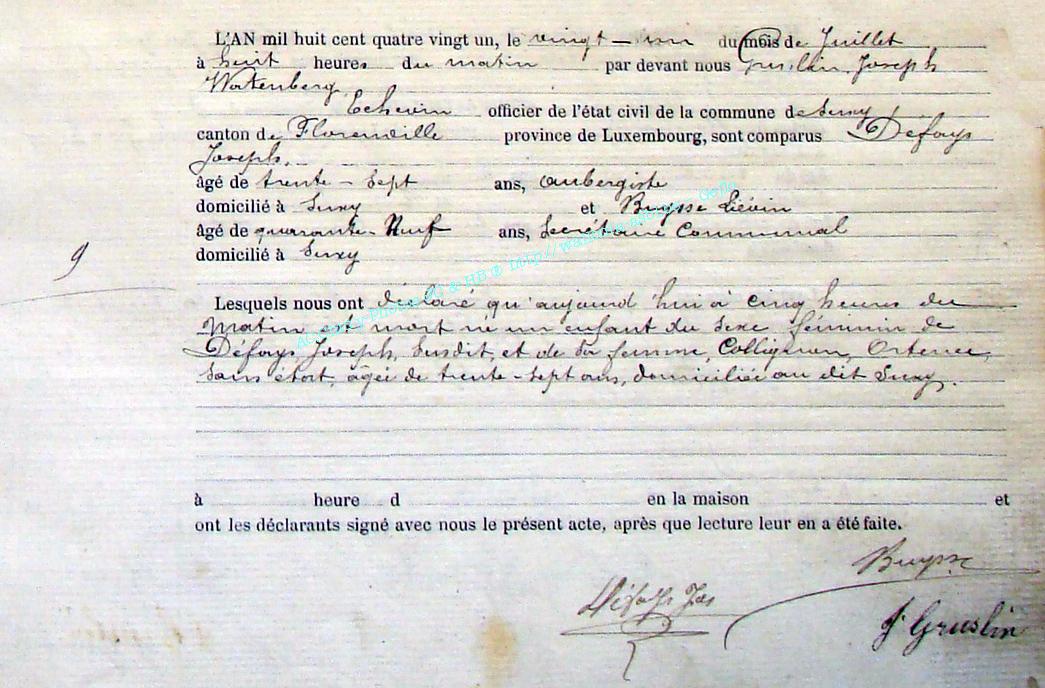 L'AN mil huit cent quatre vingt un, le vingt – un du mois de Juillet
à huit heures du matin par devant nous Gruslin Joseph
Watenberg,
Echevin officier de l'état civil de la commune de Suxy
canton de Florenville province de Luxembourg, sont comparus Défays
Joseph,
âgé de trente - sept ans, aubergiste
domicilié à Suxy et Buysse Liévin
âgé de quarante - Neuf ans, Secrétaire Communal
domicilié à Suxy
9
Lesquels nous ont déclaré qu'aujourd'hui à cinq heures du
Matin est mort né un enfant du sexe féminin de
Défays, Joseph, Susdit, et de sa femme, Collignon, Ortence,
Sans état, âgée de trente - sept ans, domiciliée au dit Suxy.
à heure d en la maison et
ont les déclarants signé avec nous le présent acte, après que lecture leur en a été faite.
Buysse
Défays Jos
J Gruslin